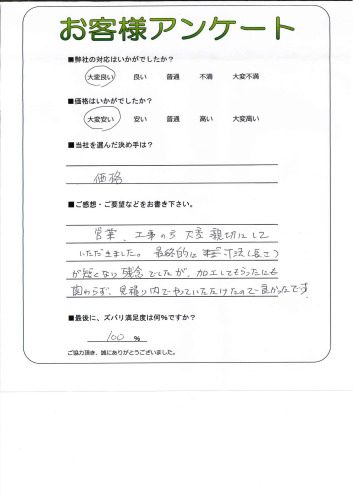 お客様アンケート
■弊社の対応はいかがでしたか？
大変良い 良い 普通 不満 大変不満
■価格はいかがでしたか？
大変安い 安い 普通 高い 大変高い
■当社を選んだ決め手は？
価格
■ご感想・ご要望などをお書き下さい。
営業、工事の方 大変 親切にして
いただきました。最終的に 寸法(長さ)
が短くなり残念でしたが、加工してもらったにも
関わらず、見積り内でやっていただけたので良かったです
■最後に、ズバリ満足度は何％ですか？
100 %
ご協力頂き、誠にありがとうございました。